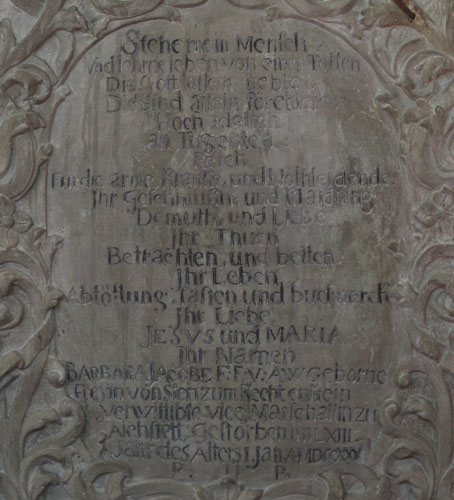 Stehe mein Mensch
Vnd lehrne leben von einer Todten
Die Gott allein liebte
Die Sünd allein förchtete
Hoch adelich
an Tugenten
Reich
Für die arme Kranke, und Nothleidende.
Ihr und
Demuth, und Liebe
Ihr Thuen
Betrachten, und betten
Ihr Leben
Abtöttung, fasten und bueßwerck
Ihr Liebe
JESVS und MARIA
Ihr Namen
BARBARA JACOBE F. F. V: A.W Geborne
Freyin von Stein zum Rechtenstein
Verwittibte vice Marschallin zu
Aichstett, Gestorben im LXIII
Jahr des Alters 1 Jan. A MDCCXXX
R. I. P.